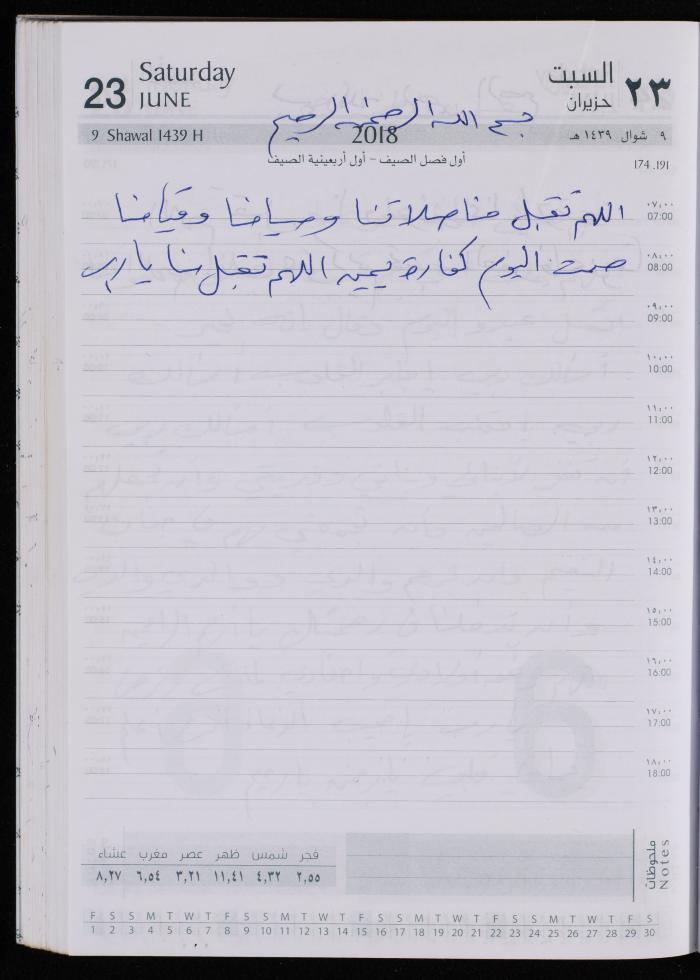 23 Saturday JUNE السبت حزيران ٢٣
بسم الله الرحمن الرحيم
9 Shawal 1439 H 2018 ٩ شوال ١٤٣٩ هـ
أول فصل الصيف - أول أربعينية الصيف 174 .191
اللهم تقبل منا صلاتنا وصيامنا وقيامنا ٠٧,٠٠
07:00
صمت اليوم كفارة يمين اللهم تقبل منا يا رب ٠٨,٠٠
08:00
٠٩,٠٠
09:00
١٠,٠٠
10:00
١١,٠٠
11:00
١٢,٠٠
12:00
١٣,٠٠
13:00
١٤,٠٠
14:00
١٥,٠٠
15:00
١٦,٠٠
16:00
١٧,٠٠
17:00
١٨,٠٠
18:00
ملحوظات
Notes
فجر شمس ظهر عصر مغرب عشاء
٢,٥٥ ٤,٣٢ ١١,٤١ ٣,٢١ ٦,٥٤ ٨,٢٧
F S S M T W T F S S M T W T F S S M T W T F S S M T W T F S
1 2 3 4 5 6 7 8 9 10 11 12 13 14 15 16 17 18 19 20 21 22 23 24 25 26 27 28 29 30